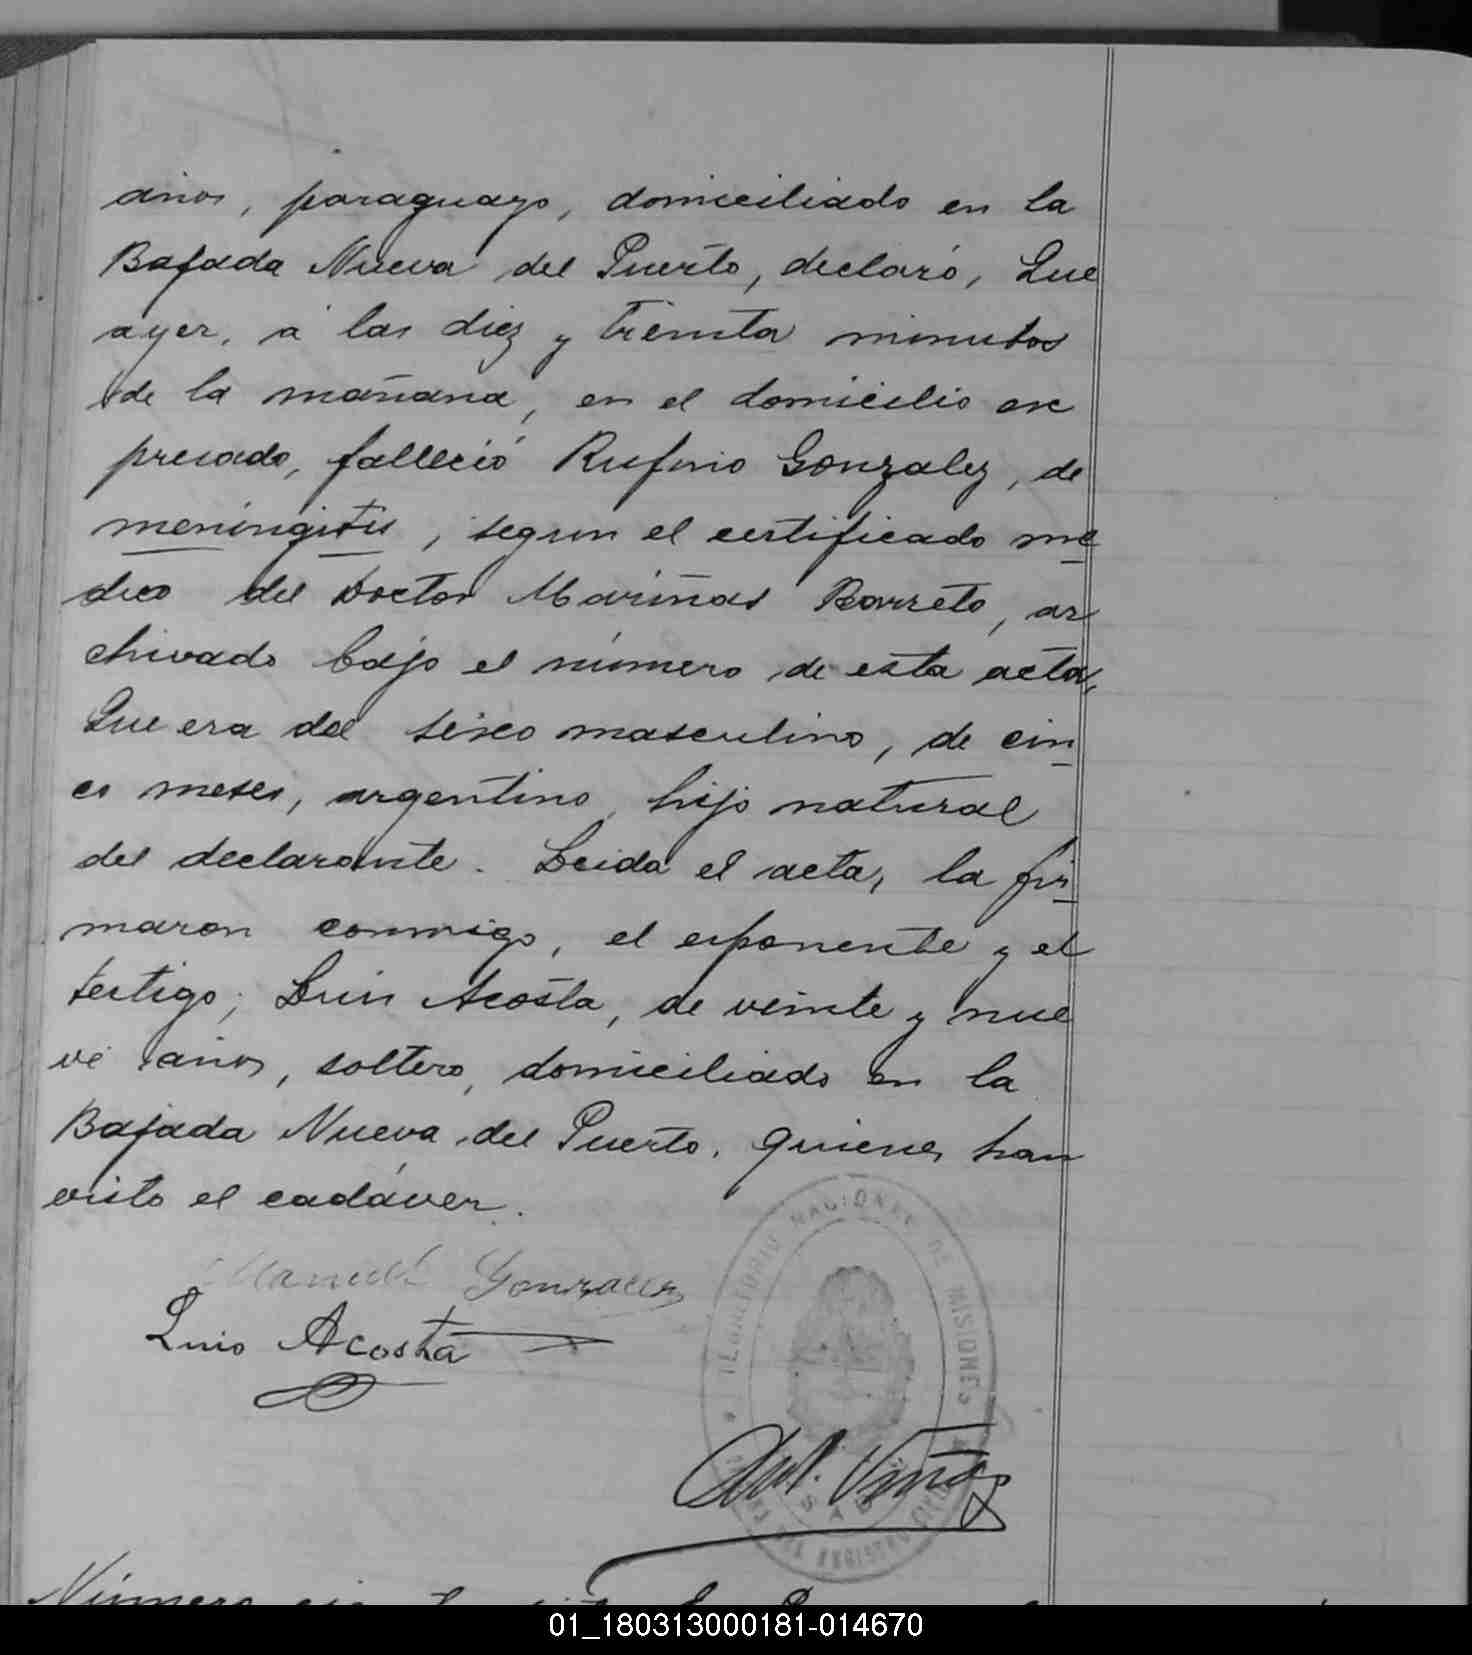 años, paraguayo, domiciliado en la
Bajada Nueva del Puerto, declaró, Que
ayer, á las diez y treinta minutos
de la mañana, en el domicilio ex
presado, falleció Rufino Gonzalez, de
meningitis, segun el certificado me
dico del Doctor Mariñas Barreto, ar
chivado bajo el número de esta acta,
Que era del sexo masculino, de cin
co meses, argentino, hijo natural
del declarante. Leida el acta, la fir
maron conmigo, el exponente y el
testigo; Luis Acosta, de veinte y nue
ve años, soltero, domiciliado en la
Bajada Nueva del Puerto, quienes han
visto el cadáver.
Manuel Gonzalez
Luis Acosta
TERRITORIO NACIONAL DE MISIONES
Ant. Viñas
Número
01_180313000181-014670